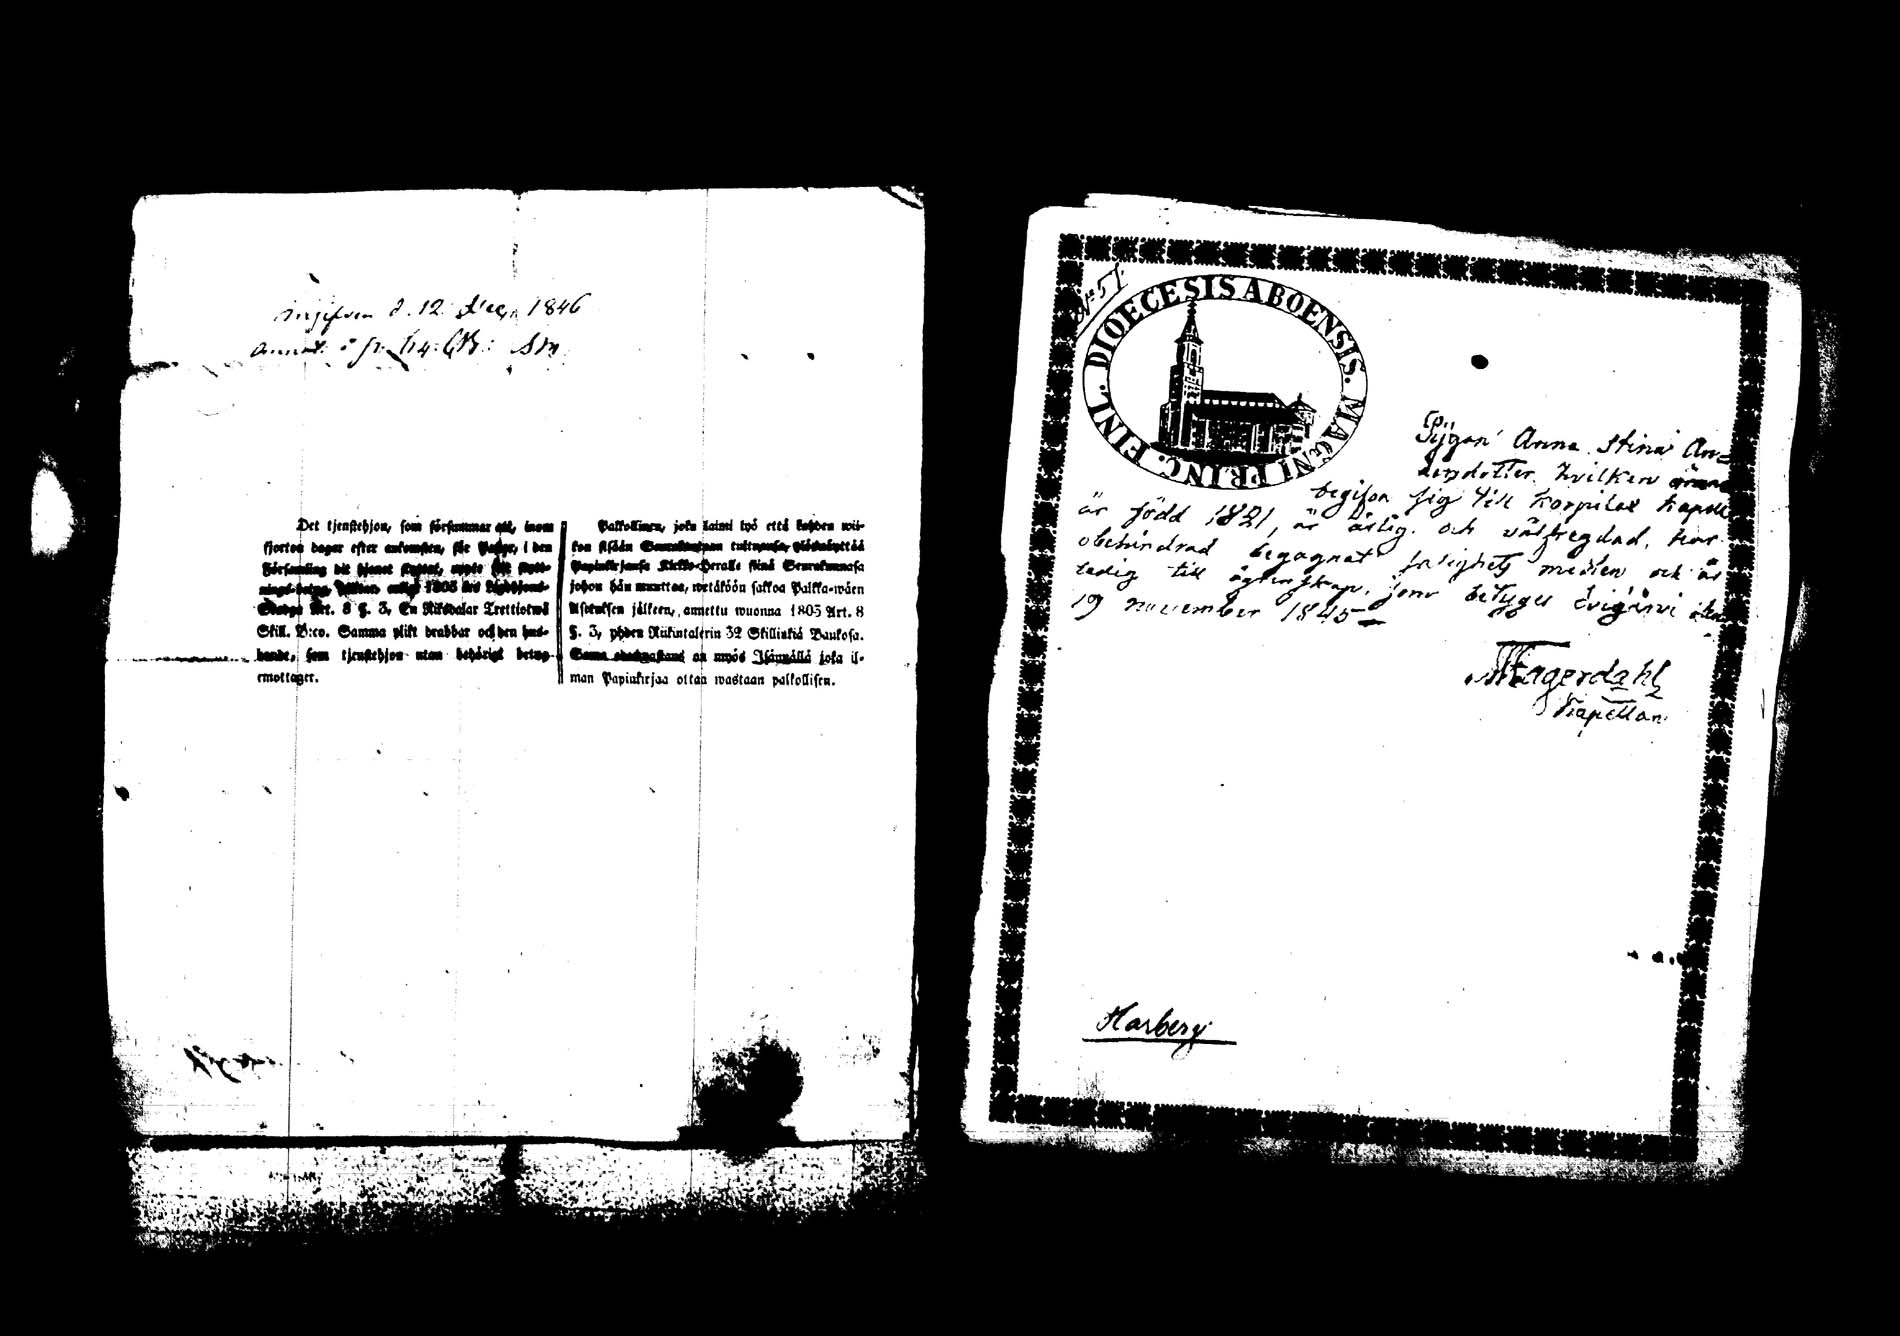 d. 12 Dec. 1846
Det tjenstehjon, som försummar att, inom
fjorton dagar efter ankomsten, för Pastor, i den
Församling dit tjenst flyttat,
1805 års Legohjons-
Stadga Art. 8 §. 3, En Riksdalar Trettiotwå
Skill. B:co. Samma plikt drabbar och den hus-
bonde, som tjenstehjon utan behörigt betyg
emottager.
Palkollinen, joka laimi lyö että kahden wii-
kon sisään Seurakuntaan tultuansa, ylösnäyttää
Papinkirjansa Kirkko-Herralle siinä Seurakunnasa
johon hän muuttaa, wetäköön sakkoa Palkka-wäen
Asetuksen jälkeen, annettu wuonna 1805 Art. 8
§. 3, yhden Riikintalerin 32 Skillinkiä Bankosa.
Sama on myös Isännällä joka il-
man Papinkirjaa ottaa wastaan palkollisen.
N:o 57.
DIOECESIS ABOENSIS. MAGNI PRINC. FINL.
Pigan Anna Stina An-
dersdotter, hvilken
begifva sig till Korpilax Kapell
är född 1821, är ärlig och välfregdad, har
obehindrad begagnat salighets medlen och är
ledig till ägtenskap, som betygas
19 november 1845
Fagerdahl
Kapellan
Harberg